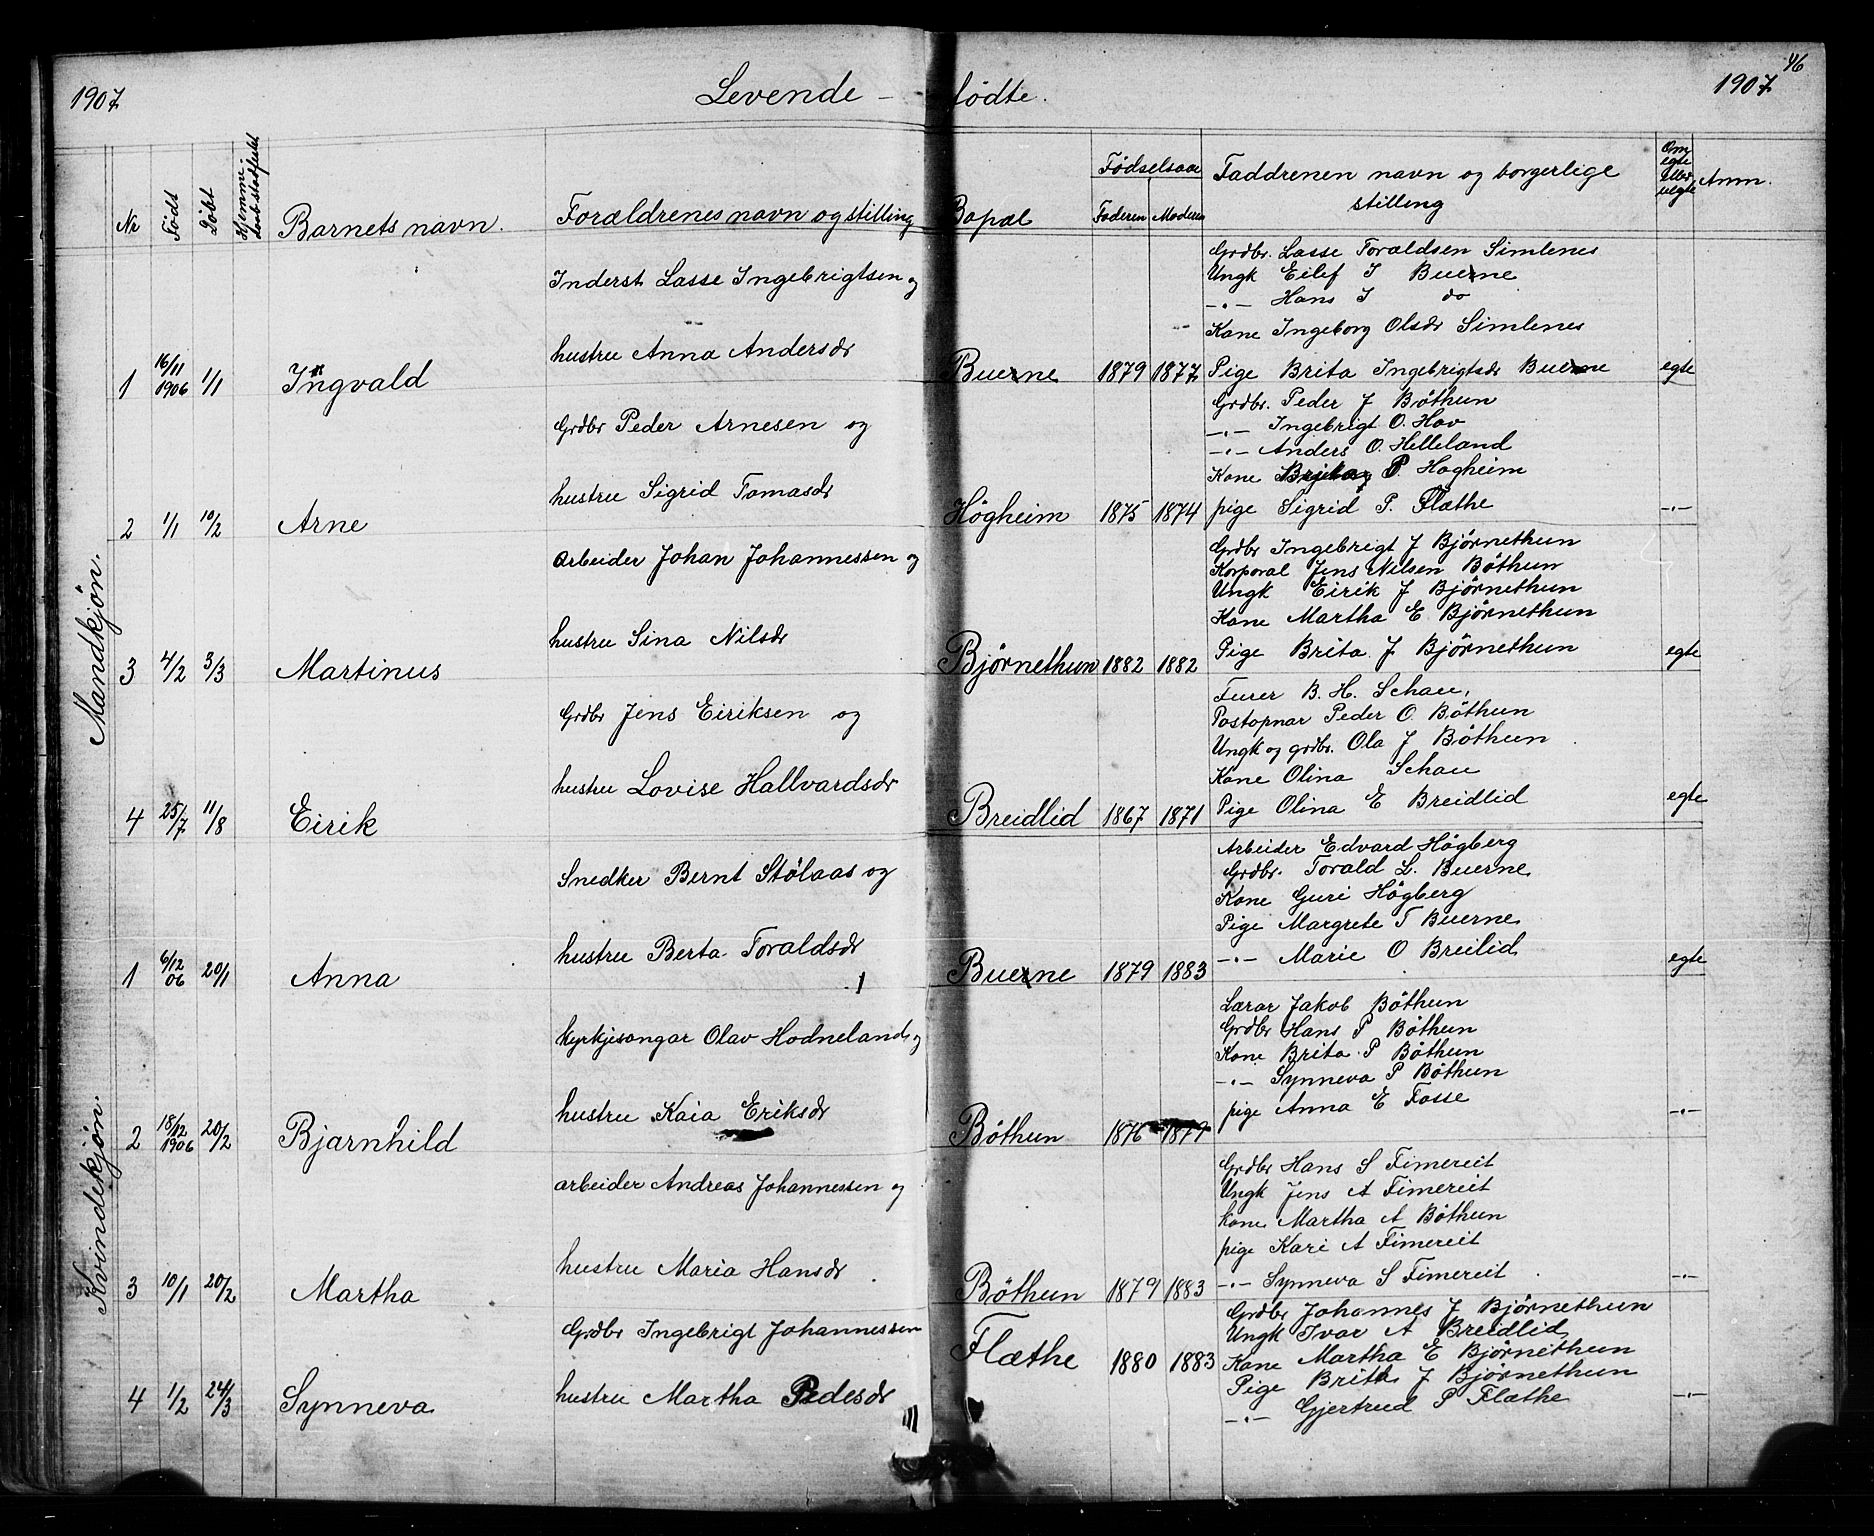 46
1907 Levende - fødte. 1907
Nr Født Døbt Hjemme-daab stadfestet Barnets navn. Forældrenes navn og stilling Bopæl Fødselsaar Faderen Moderen Faddrenen navn og borgerlige stilling Om egte eller uegte Anm.
Mandkjøn.
Inderst Lasse Ingebrigtsen og
hustru Anna Andersdr
1 16/11 1906 1/1 Ingvald Buerne 1879 1877 egte
Grdbr. Lasse Toraldsen Simlenes
Ungk Eilef I Buerne
-"- Hans I do
Kone Ingeborg Olsdr Simlenes
Pige Brita Ingebrigtsdr Buerne
Grdbr Peder Arnesen og
hustru Sigrid Tomasdr
2 1/1 10/2 Arne Högheim 1875 1874 -"-
Grdbr. Peder J Böthun
-"- Ingebrigt O. Hov
-"- Anders O. Helleland
Kone P Hogheim
pige Sigrid P. Flæthe
Arbeider Johan Johannessen og
hustru Sina Nilsdr
3 4/2 3/3 Martinus Björnethun 1882 1882 egte
Grdbr Ingebrigt J Björnethun
Korporal Jens Nilsen Böthun
Ungk Eirik J Björnethun
Kone Martha E Björnethun
Pige Brita J Björnethun
Grdbr Jens Eiriksen og
hustru Lovise Hallvardsdr
4 25/7 11/8 Eirik Breidlid 1867 1871 egte
Furer B. H. Schau,
Postopnar Peder O. Böthun
Ungk og grdbr. Ola J Böthun
Kone Olina Schau
Pige Olina E Breidlid
Kvindekjøn.
Snedker Bernt Stölaas og
hustru Berta Toraldsdr
1 6/12 06 20/1 Anna Buerne 1879 1883 egte
Arbeider Edvard Högberg
Grdbr. Torald L. Buerne
Kone Guri Högberg
Pige Margrete T Buerne
-"- Marie O Breilid
Kyrkjesongar Olav Hodneland og
hustru Kaia Eriksdr
2 18/12 1906 20/2 Bjarnhild Böthun 1876 1879 -"-
Lærar Jakob Böthun
Grdbr Hans P Böthun
Kone Brita P Böthun
-"- Synneva P Böthun
pige Anna E Fosse
arbeider Andreas Johannessen og
hustru Maria Hansdr
3 10/1 20/2 Martha Böthun 1879 1883 -"-
Grdbr Hans S Fimereit
Ungk Jens A Fimereit
kone Martha A Böthun
pige Kari A Fimereit
-"- Synneva S Fimereit
Grdbr Ingebrigt Johannessen
hustru Martha Pedesdr
4 1/2 24/3 Synneva Flæthe 1880 1883 -"-
Grdbr Johannes J Björnethun
Ungk Ivar A Breidlid
Kone Martha E Björnethun
Pige Brita J Björnethun
-"- Gjertrud P Flæthe